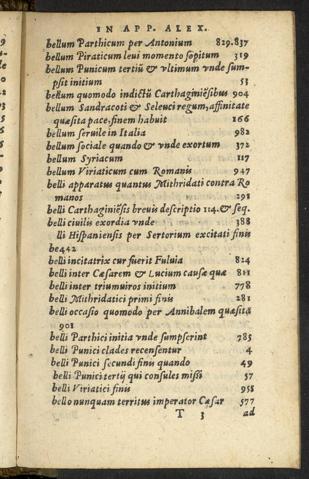 IN APP. ALEX.
bellum Parthicum per Antonium 829.837
bellum Piraticum leui momento sopitum 319
bellum Punicum tertiũ & vltimum vnde sum-
psit initium 53
bellum quomodo indictũ Carthaginiẽsibus 904
bellum Sandracoti & Seleuci regum, affinitate
quæsita pace, finem habuit 166
bellum seruile in Italia 982
bellum sociale quando & vnde exortum 372
bellum Syriacum 117
bellum Viriaticum cum Romanis 947
belli apparatus quantus Mithridati contra Ro
manos 291
belli Carthaginiẽsis breuis descriptio 114. & seq.
belli ciuilis exordia vnde 388
lli Hispaniensis per Sertorium excitati finis
be442
belli incitatrix cur fuerit Fuluia 814
belli inter Cæsarem & Lucium causæ quæ 811
belli inter triumuiros initium 778
belli Mithridatici primi finis 281
belli occasio quomodo per Annibalem quæsita
901
belli Parthici initia vnde sumpserint 785
belli Punici clades recensentur 4
belli Punici secundi finis quando 49
belli Punici tertij qui consules missi 57
belli Viriatici finis 958
bello nunquam territus imperator Cæsar 577
T 3 ad